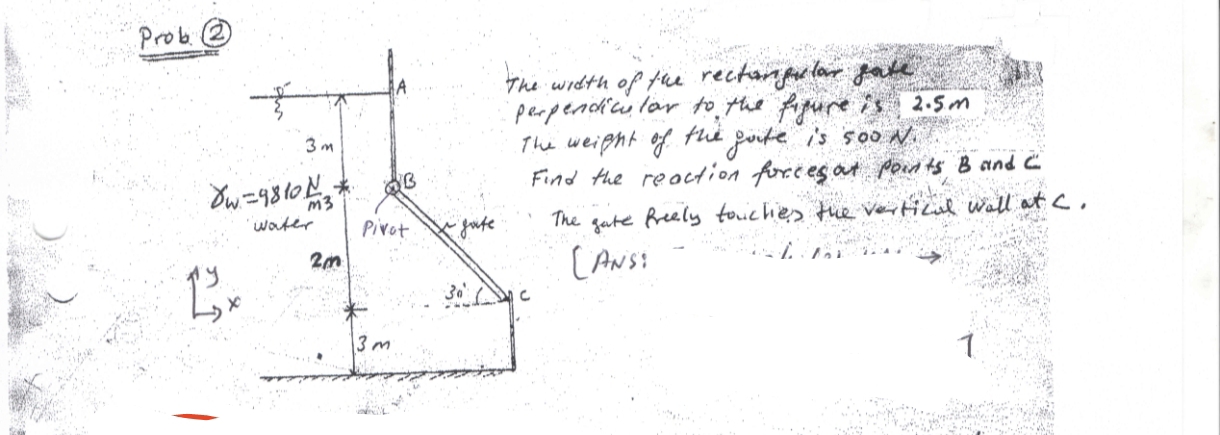 Prob. ②
A
The width of the rectangular gate
perpendicular to the figure is 2.5m
3m
The weight of the gate is 500 N.
Find the reaction forces at points B and C
B
γw=9810 N/m3
water
Pivot
gate
The gate freely touches the vertical wall at C.
2m
[ANS:
→
y
x
30°
C
3m
1